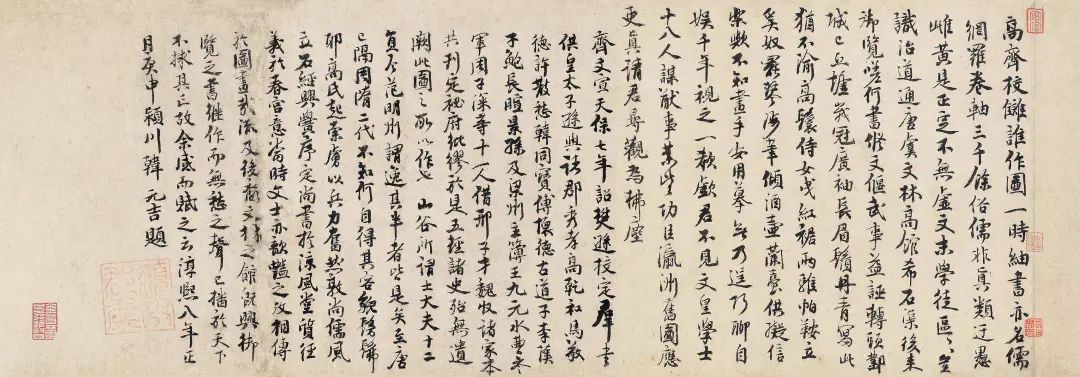 高齊校讎誰作圖一時紬書亦名儒
網羅卷軸三千餘俗儒非真類迂愚
雌黃是正定不無虛文末學徒區區豈
識治道通唐虞文林高館希石渠後來
御覽嗟何書修文偃武事益誣轉頭鄴
城已丘墟峩冠廣袖長眉鬚丹青寫此
猶不渝高鬟侍女曳紅裾兩騅帕鞍立
奚奴罷琴涉筆傾酒壺蘭臺供擬信
樂歟不知畫手安用摹無乃逞巧聊自
娛千年視之一欷歔君不見文皇學士
十八人謀猷事業皆功臣瀛洲舊圖應
更真請君尋觀為拂塵
齊文宣天保七年詔樊遜校定羣書
供皇太子遜與諸郡秀孝高乾和馬敬
德許散愁韓同寶傅懷德古道子李漢
子鮑長暄景孫及梁州主簿王九元水曹參
軍周子深等十一人借邢子才魏收諸家本
共刊定秘府紕繆於是五經諸史殆無遺
闕此圖之所以作也 山谷所謂士大夫十二
員范明州謂逸其半者皆是矣至唐
已隔周隋二代不知何自得其容貌髣髴
耶高氏起索虜以兵力奮然敦尚儒風
立石經興黌序定尚書於涼風堂質經
義於春宮意當時文士亦歆豔之故相傳
於圖畫哉流及後嗣文林之館既興御
覽之書繼作而無愁之聲已播於天下
不救其亡故余感而賦之云淳熙八年正
月庚申 潁川韓元吉題